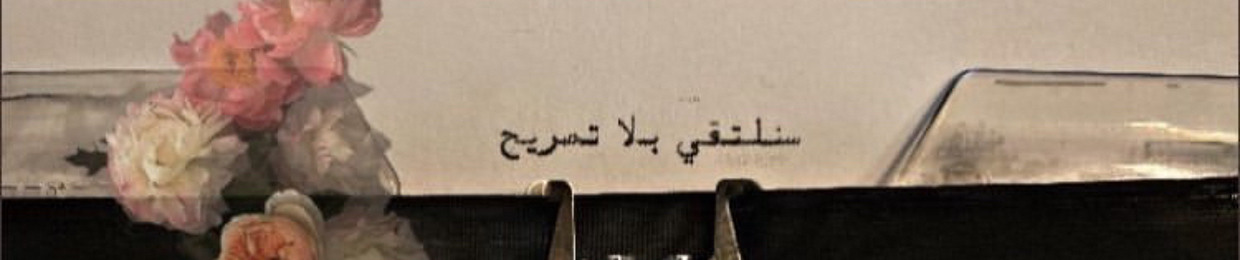 سنلتقي بلا تصريح